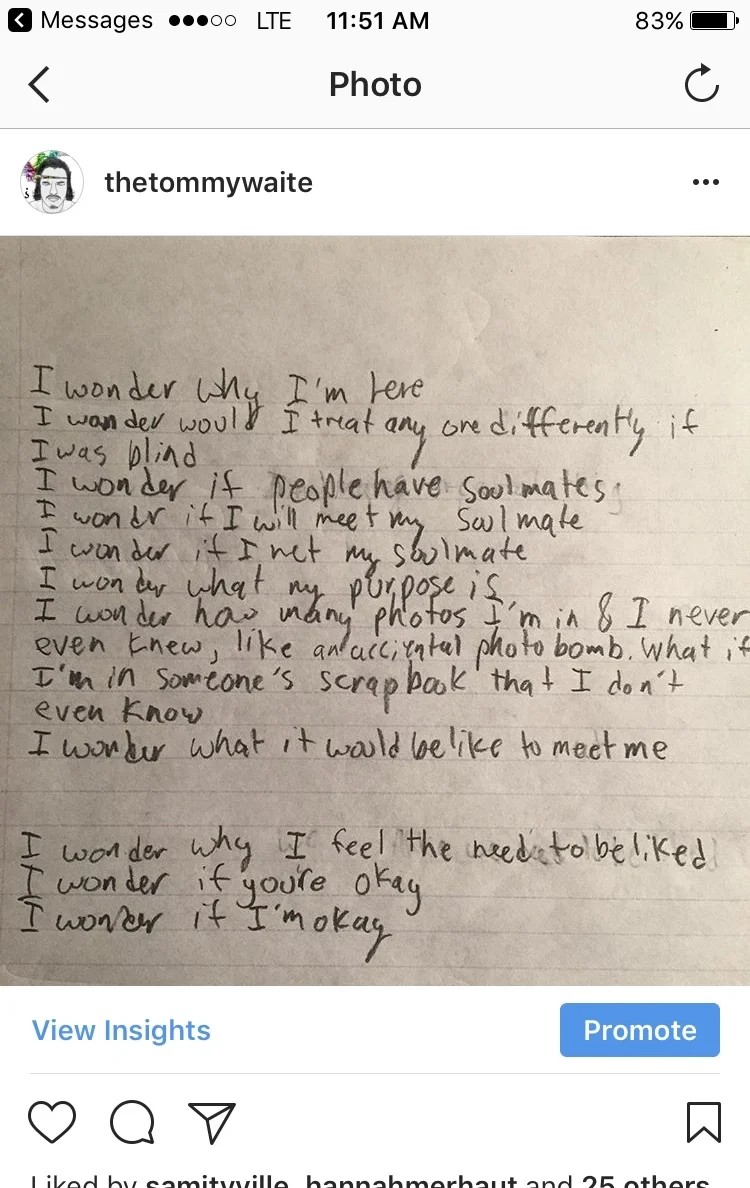 Messages LTE 11:51 AM 83%
Photo
thetommywaite
I wonder why I'm here
I wonder would I treat any one differently if
I was blind
I wonder if people have soulmates
I wondr if I will meet my soulmate
I wonder if I met my soulmate
I wonder what my purpose is
I wonder how many photos I'm in & I never
even knew, like an accidental photo bomb. What if
I'm in someone's scrapbook that I don't
even know
I wonder what it would be like to meet me
I wonder why I feel the need to be liked
I wonder if you're okay
I wonder if I'm okay
View Insights Promote
Liked by samityville, hannahmerhaut and 25 others